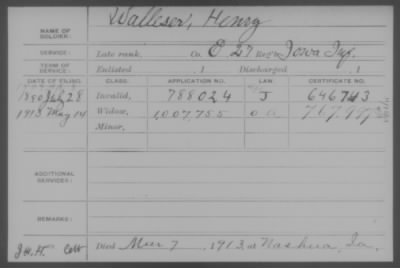 Walliser, Henry
NAME OF SOLDIER:
SERVICE: Late rank, Co. E 27 Reg't Iowa Inf.
TERM OF SERVICE: Enlisted , 1 Discharged , 1
DATE OF FILING. CLASS. APPLICATION NO. LAW CERTIFICATE NO.
1890 July 28 Invalid, 788024 J 646743
1913 May 14 Widow, 1007,755 767,997
Minor,
ADDITIONAL SERVICES:
REMARKS:
Died Mar 7, 1913, at Nashua, Ia.